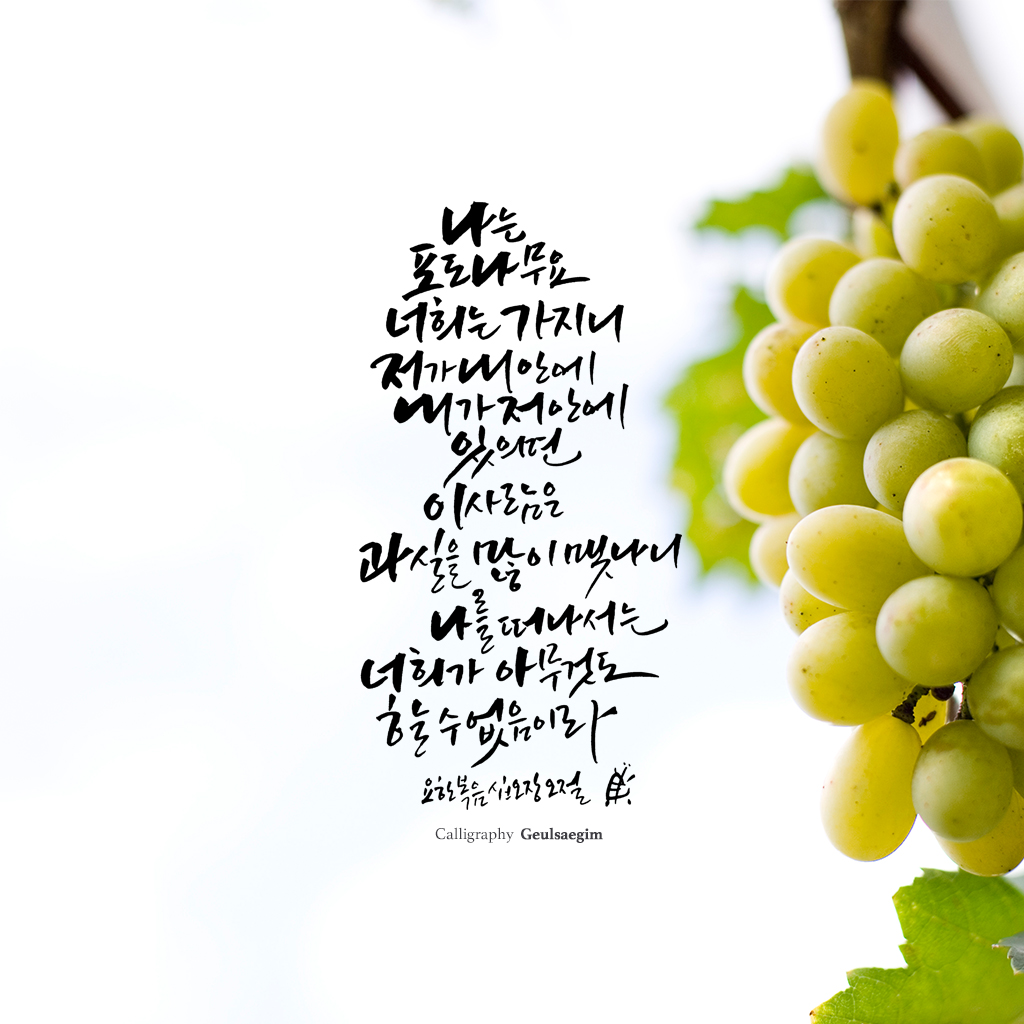 나는
포도나무요
너희는 가지니
저가 내 안에
내가 저 안에
있으면
이 사람은
과실을 많이 맺나니
나를 떠나서는
너희가 아무것도
할 수 없음이라
요한복음 십오장 오절
Calligraphy Geulsaegim